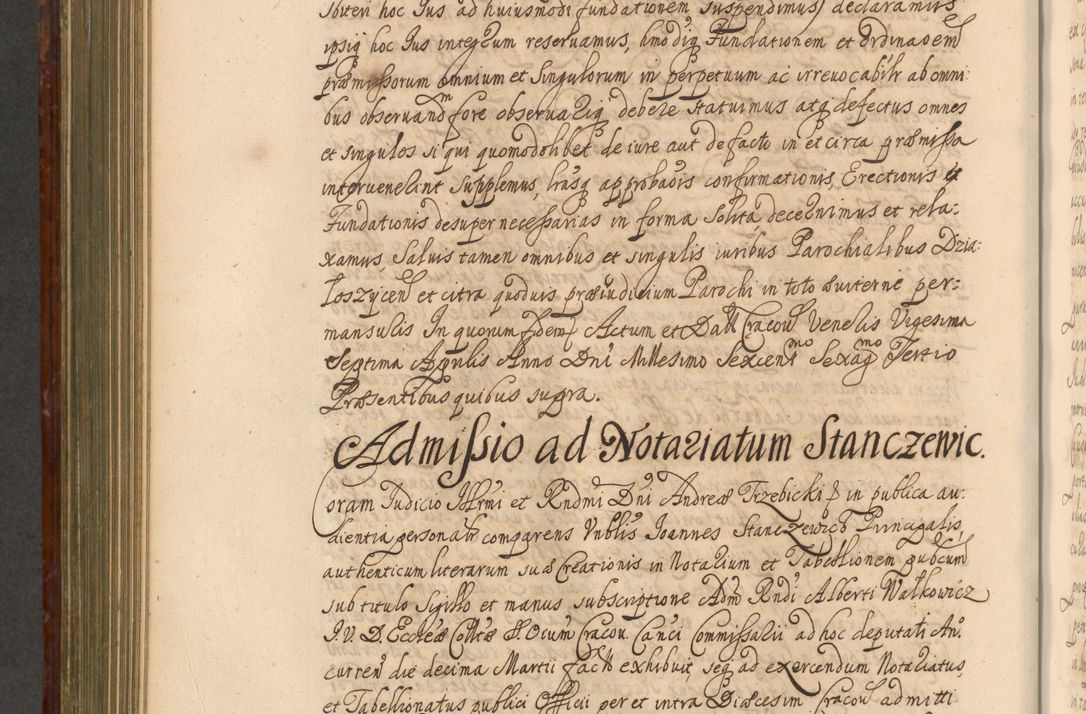 sbiteri hoc Jus ad huiusmodi fundationem suspendimus) declaramus
ipsiq hoc Jus integrum reseruamus, hmodiq Fundationem et Ordinaoem
præmissorum omnium et Singulorum in perpetuum ac irreuocabilr ab omni:
bus obseruandm fore obseruariq debere statuimus atq defectus omnes
et singulos si qui quomodolibet de iure aut de facto in et circa præmissa
interuenerint Supplemus, lrasq approbaois confirmationis, Erectionis et
Fundationis desuper necessarias in forma solita decernimus et rela:
xamus, Saluis tamen omnibus et singulis iuribus Parochialibus Dzia:
loszycen et citra quoduis præiudicium Parochi in toto duiterne per:
mansulis In quorum fidem Actum et Datt Cracou Veneris Vigesima
Septima Aprilis Anno Dni Millesimo Sexcenmo Sexagmo Tertio
Præsentibus quibus supra.
Admissio ad Notariatum Stanczewic.
Coram Judicio Illrmi et Rndmi Dni Andreæ Trzebicki in publica au:
dientia personalr comparens Vnblis Joannes Stanczewicz Principalis,
authenticum literarum suæ Creationis in Notarium et Tabellionem publcum
sub titulo Sigillo et manus subscriptione Adm Rndi Alberti Walkowicz
J. V. D. Ecclæ Colltæ S. Ocium Cracou. Canci Commissarii ad hoc deputati An.
curren die decima Martii factt exhibuit, seq ad exercendum Notariatus,
et Tabellionatus publici Officii per et intra Diæcesim Cracou admitti